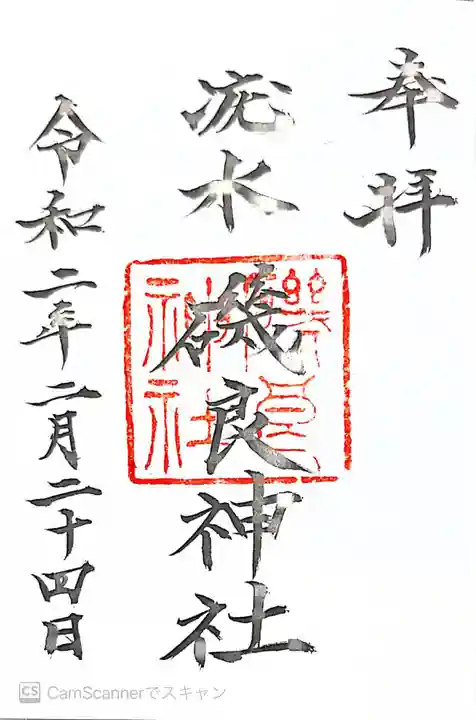 奉拝
疣水磯良神社
磯良
神社
令和二年二月二十四日
CS CamScannerでスキャン